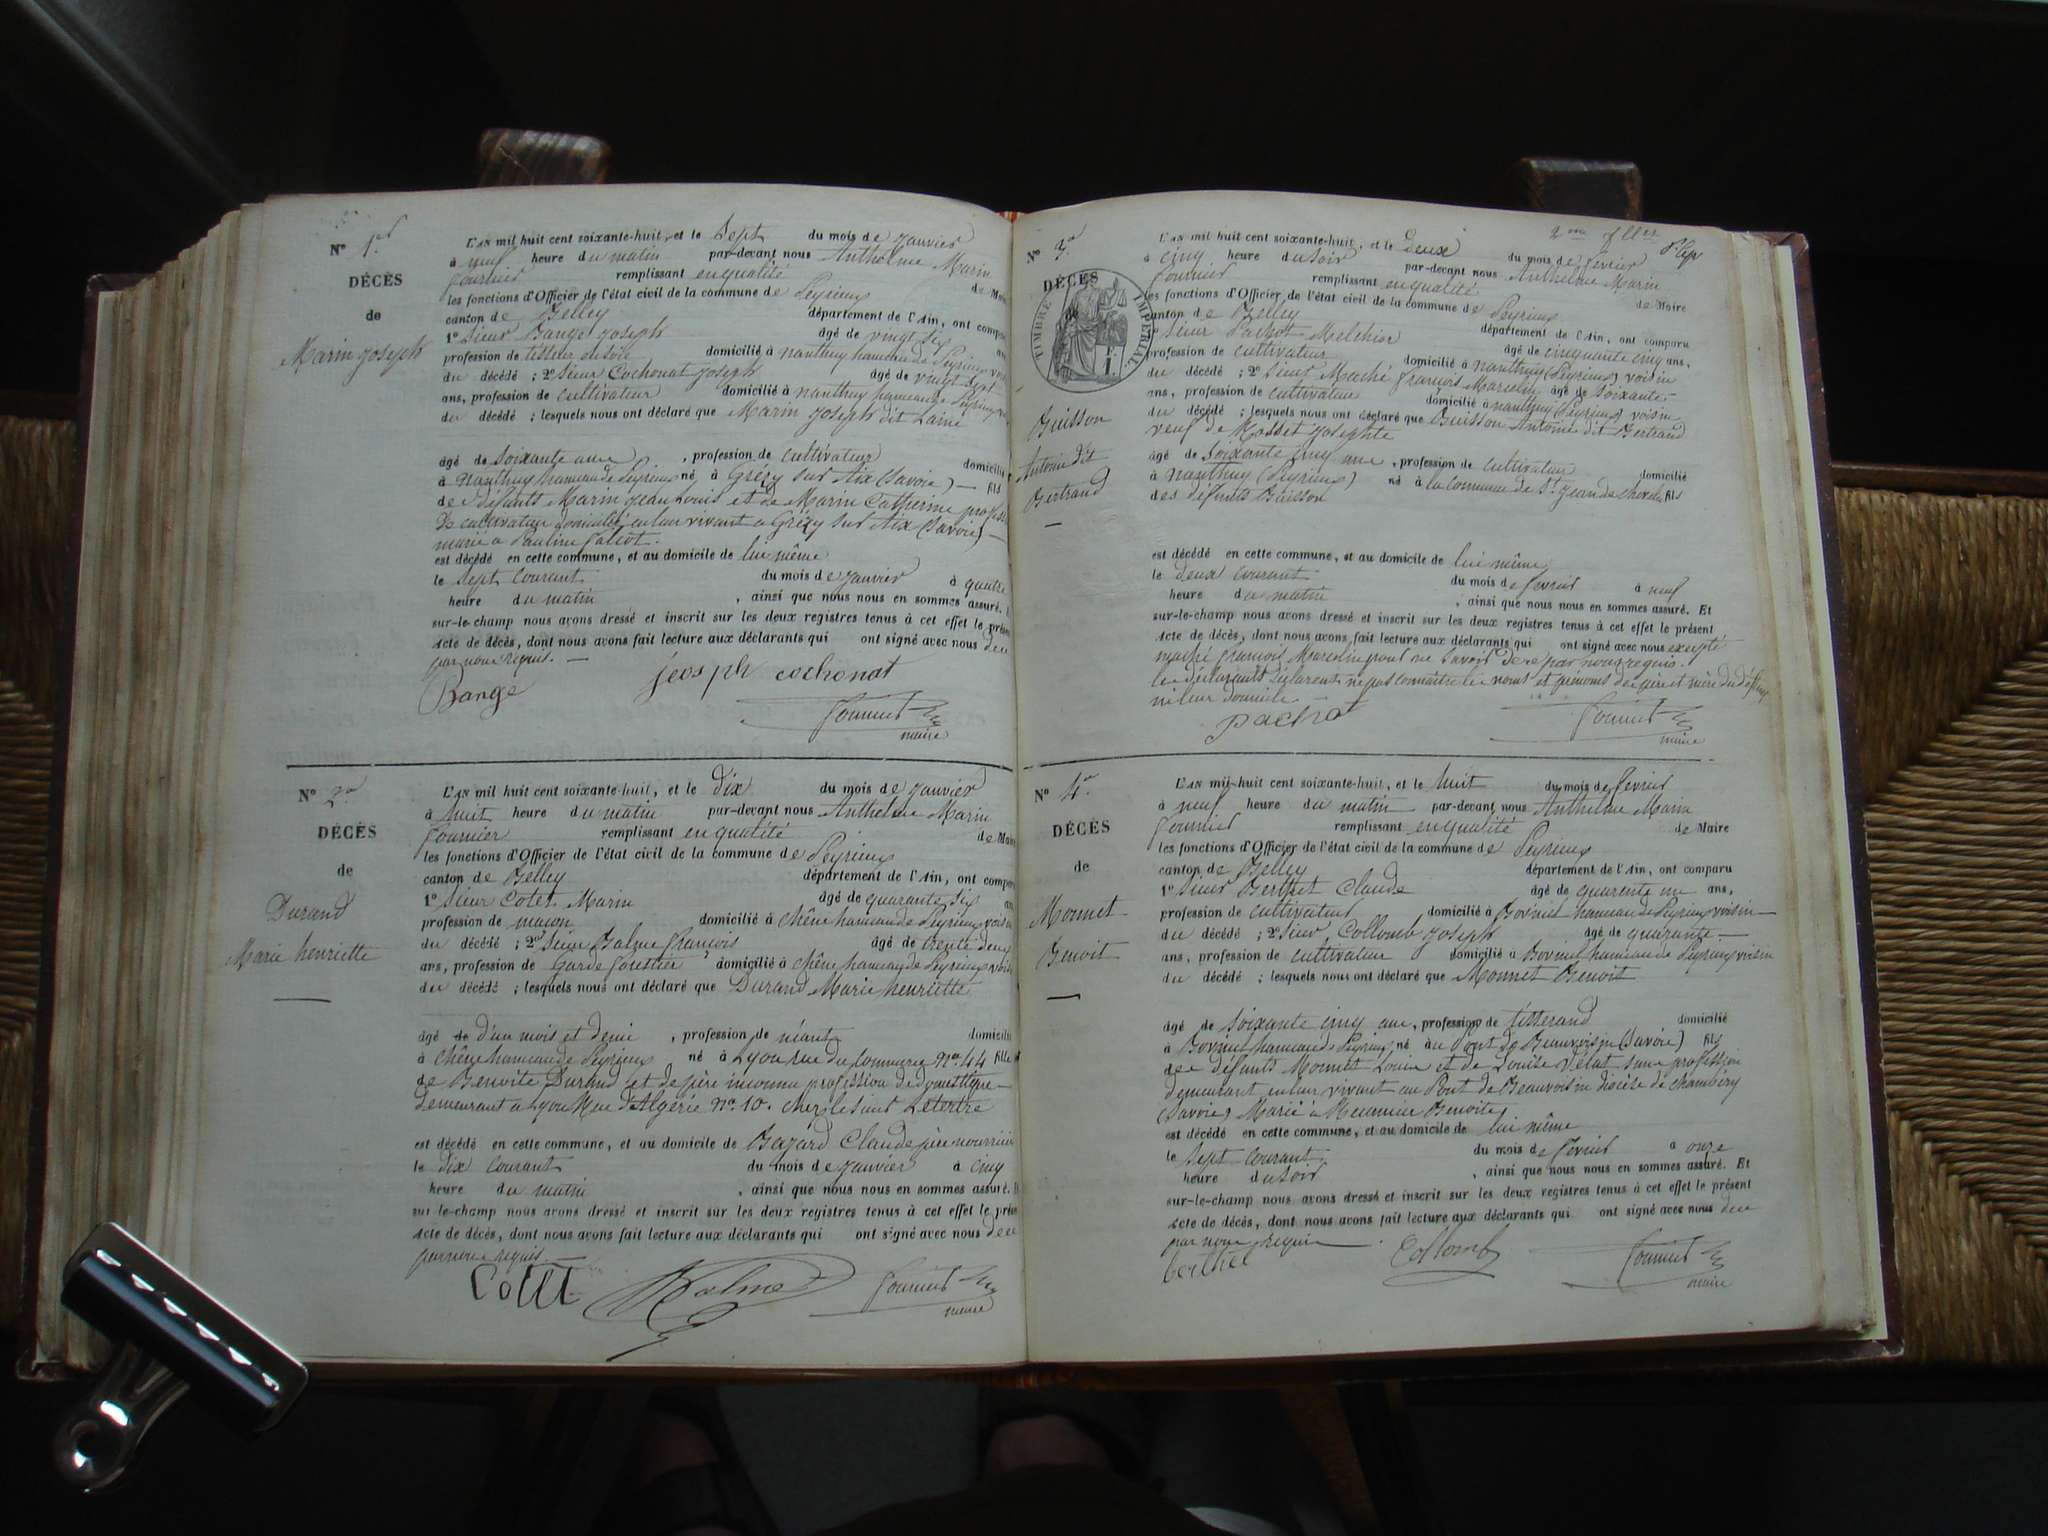 N° 1.er
DÉCÈS
de
Marin Joseph
L'AN mil huit cent soixante-huit, et le Sept du mois de Janvier
à neuf heure du matin par-devant nous Anthelme Marin
fournier remplissant en qualité de Maire
les fonctions d'Officier de l'état civil de la commune de Peyrieux
canton de Belley département de l'Ain, ont comparu
1° Sieur Bange Joseph âgé de vingt six ans
profession de domicilié à nanthuy hameau de Peyrieux voisin
du décédé ; 2° Sieur Cochonat Joseph âgé de vingt sept
ans, profession de cultivateur domicilié à nanthuy hameau de Peyrieux
du décédé ; lesquels nous ont déclaré que Marin Joseph dit Lainé
âgé de soixante ans, profession de cultivateur domicilié
à nanthuy hameau de Peyrieux né à Grésy sur Aix (Savoie) — fils
de défunts Marin Jean Louis et de Marin Catherine
de cultivateur domicilié en leur vivant a Grésy sur Aix (Savoie) —
marié a Pauline
est décédé en cette commune, et au domicile de lui même
le sept courant du mois de Janvier à quatre
heure du matin, ainsi que nous nous en sommes assuré.
sur-le-champ nous avons dressé et inscrit sur les deux registres tenus à cet effet le présent
acte de décès, dont nous avons fait lecture aux déclarants qui ont signé avec nous de ce
par nous requis. —
Bange jeosph cochonat
fournier
maire
N° 2.e
DÉCÈS
de
Durand
Marie henriette
L'AN mil huit cent soixante-huit, et le dix du mois de Janvier
à huit heure du matin par-devant nous Anthelme Marin
fournier remplissant en qualité de Maire
les fonctions d'Officier de l'état civil de la commune de Peyrieux
canton de Belley département de l'Ain, ont comparu
1° Sieur Colet Marin âgé de quarante six ans
profession de macon domicilié à Chêne hameau de Peyrieux voisin
du décédé ; 2° Sieur Balme francois âgé de trente deux
ans, profession de Garde forestier domicilié à Chêne hameau de Peyrieux voisin
du décédé ; lesquels nous ont déclaré que Durand Marie henriette
âgé de d'un mois et demi, profession de néant domicilié
à Chêne hameau de Peyrieux né à Lyon rue du Commerce N° 44 fille
de Benoite Durand et de père inconnu profession de domestique —
demeurant a Lyon Rue d'Algérie N° 10. chez le Sieur Letertre
est décédé en cette commune, et au domicile de Bazard Claude père nourricier
le dix courant du mois de Janvier à cinq
heure du matin, ainsi que nous nous en sommes assuré.
sur-le-champ nous avons dressé et inscrit sur les deux registres tenus à cet effet le présent
acte de décès, dont nous avons fait lecture aux déclarants qui ont signé avec nous de ce
par nous requis. —
Colet Balme fournier
maire
2me fllet
N° 3.e
DÉCÈS
TIMBRE IMPÉRIAL
1 F.
Buisson
Antoine dit
Bertrand
L'AN mil huit cent soixante-huit, et le deux du mois de février
à cinq heure du soir par-devant nous Anthelme Marin
fournier remplissant en qualité de Maire
les fonctions d'Officier de l'état civil de la commune de Peyrieux
canton de Belley département de l'Ain, ont comparu
1° Sieur Pachot Melchior âgé de cinquante cinq ans,
profession de cultivateur domicilié à nanthuy (Peyrieux) voisin
du décédé ; 2° Sieur Maché francois Marcelin âgé de soixante —
ans, profession de cultivateur domicilié à nanthuy (Peyrieux) voisin
du décédé ; lesquels nous ont déclaré que Buisson Antoine dit Bertrand
veuf de Mosset Josephte
âgé de soixante cinq ans, profession de cultivateur domicilié
à nanthuy (Peyrieux) né à la commune de St Jean de chevelu fils
des défunts Buisson
est décédé en cette commune, et au domicile de lui même
le deux courant du mois de février à neuf
heure du matin, ainsi que nous nous en sommes assuré. Et
sur-le-champ nous avons dressé et inscrit sur les deux registres tenus à cet effet le présent
acte de décès, dont nous avons fait lecture aux déclarants qui ont signé avec nous excepté
maché francois Marcelin pour ne savoir de ce par nous requis.
les déclarants déclarent ne pas connaître les noms et prénoms des père et mère du défunt
ni leur domicile
pachot fournier
maire
N° 4.e
DÉCÈS
de
Monnet
Benoit
L'AN mil huit cent soixante-huit, et le huit du mois de février
à neuf heure du matin par-devant nous Anthelme Marin
fournier remplissant en qualité de Maire
les fonctions d'Officier de l'état civil de la commune de Peyrieux
canton de Belley département de l'Ain, ont comparu
1° Sieur Berthet Claude âgé de quarente un ans,
profession de cultivateur domicilié à Bovinel hameau de Peyrieux voisin —
du décédé ; 2° Sieur Collomb Joseph âgé de quarante —
ans, profession de cultivateur domicilié à Bovinel hameau de Peyrieux voisin
du décédé ; lesquels nous ont déclaré que Monnet Benoit
âgé de soixante cinq ans, profession de tisserand domicilié
à Bovinel hameau de Peyrieux né au Pont de Beauvoisin (Savoie) fils
des défunts Monnet Louis et de Louise sans profession
demeurant en leur vivant au Pont de Beauvoisin diocèse de chambéry
(Savoie) Marié à Benoite
est décédé en cette commune, et au domicile de lui même
le sept courant du mois de février à onze
heure du soir, ainsi que nous nous en sommes assuré. Et
sur-le-champ nous avons dressé et inscrit sur les deux registres tenus à cet effet le présent
acte de décès, dont nous avons fait lecture aux déclarants qui ont signé avec nous de ce
par nous requis
berthet Collomb fournier
maire